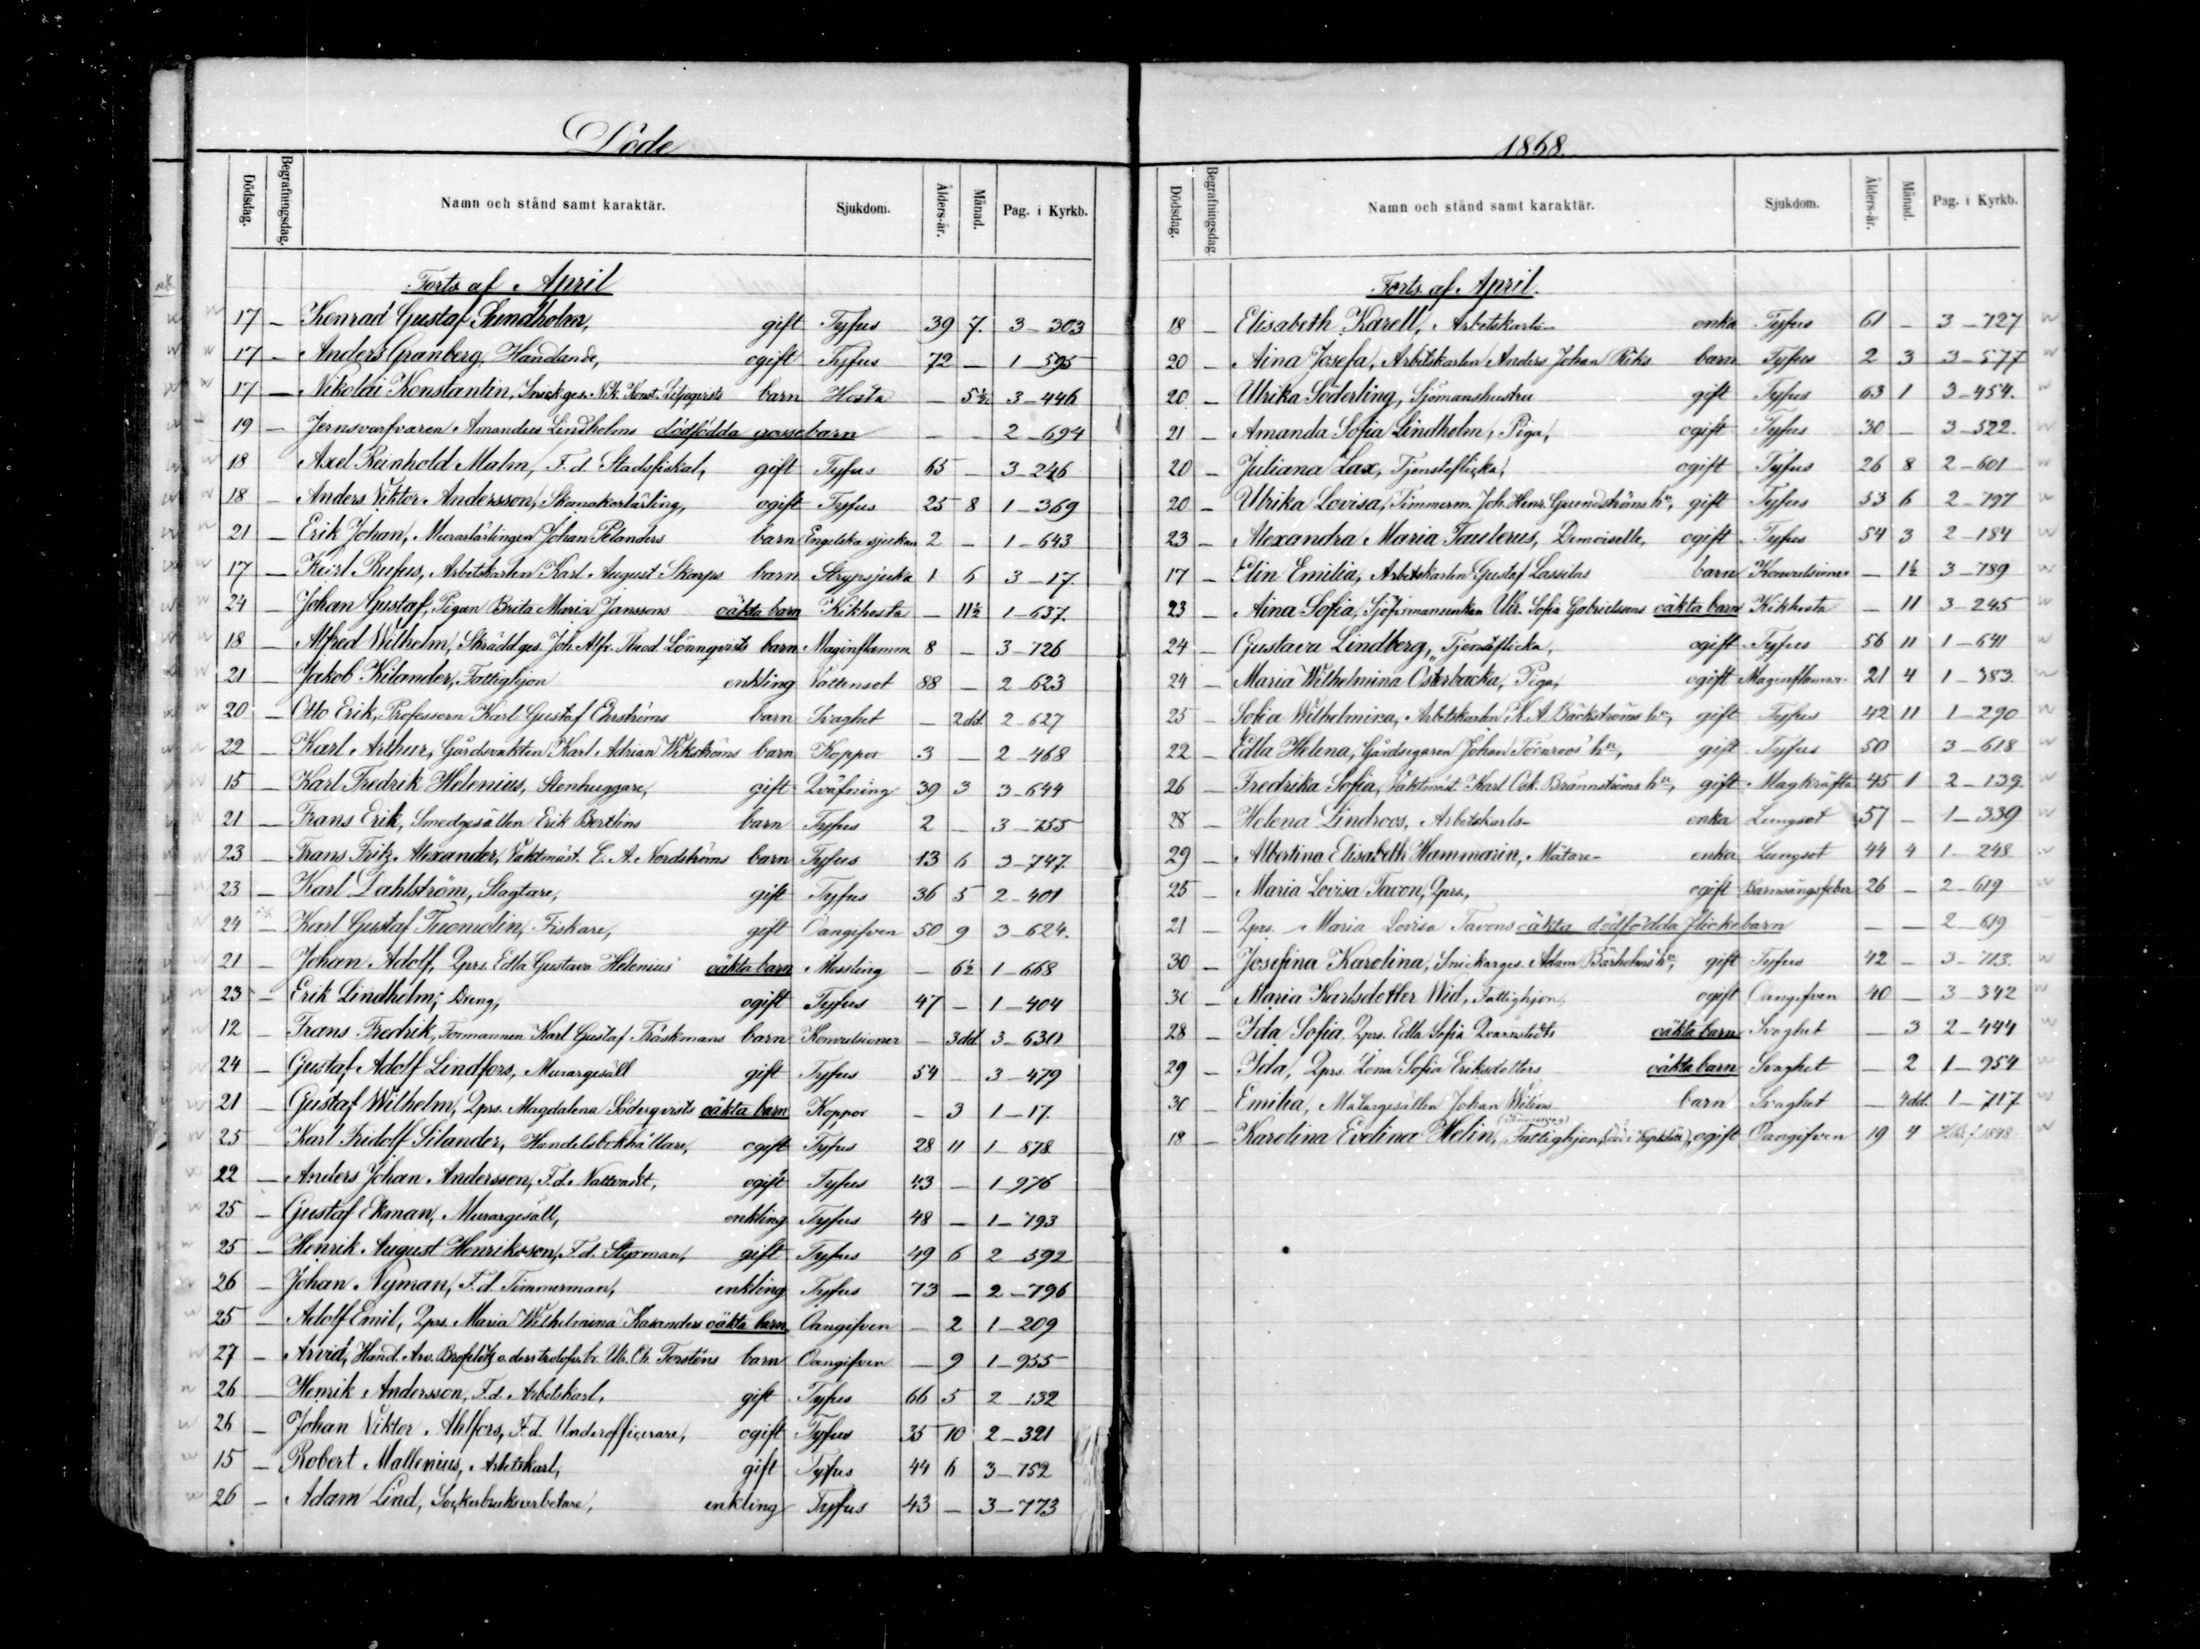 Döde
Dödsdag. Begrafningsdag. Namn och stånd samt karaktär. Sjukdom. Ålders-år. Månad. Pag. i Kyrkb.
Forts. af April
17 — Konrad Gustaf gift Tyfus 39 7. 3—303
17 — Anders Granberg, Handlande, ogift Tyfus 72 — 1—595
17 — Nikolai Konstantin, Snick.ges. Nik. Konst. Liljeqvists barn Hosta — 5½ 3—446
19 — Jernsvarfvaren Amandus Lindholms dödfödda gossebarn — — 2—694
18 Axel Reinhold Malm, F. d. Stadsfiskal, gift Tyfus 65 — 3—246
18 — Anders Viktor Andersson, Skomakarlärling, ogift Tyfus 25 8 1—369
21 — Erik Johan, Murarlärlingen Johan Pelanders barn Engelska sjukan 2 — 1—643
17 — Karl Rufus, Arbetskarlen Karl August Skarps barn Strypsjuka 1 6 3—17.
24 — Johan Gustaf, Pigan Brita Maria Janssons oäkta barn Kikhosta — 11½ 1—637.
18 — Alfred Wilhelm, Skräddges. Joh. Alfr. Theod. Lönnqvists barn Maginflamm. 8 — 3—726
21 — Jakob Kilander, Fattighjon enkling Vattensot 88 — 2—623
20 — Otto Erik, Professorn Karl Gustaf Ehrströms barn Svaghet — 2dd. 2—627
22 — Karl Arthur, Gårdsvakten Karl Adrian Wikströms barn Koppor 3 — 2—468
15 — Karl Fredrik Helenius, Stenhuggare, gift Qväfning 39 3 3—644
21 — Frans Erik, Smedgesällen Erik Bertlins barn Tyfus 2 — 3—755
23 — Frans Fritz Alexander, Vaktmäst. E. A. Nordströms barn Tyfus 13 6 3—747.
23 — Karl Dahlström, Slagtare, gift Tyfus 36 5 2—401
24 — Karl Gustaf Tuomolin, Fiskare, gift Oangifven 50 9 3—624.
21 — Johan Adolf, Qprs. Edla Gustava Helenius' oäkta barn Messling — 6½ 1—668
23 — Erik Lindholm, Dreng, ogift Tyfus 47 — 1—404
12 — Frans Fredrik, Formannen Karl Gustaf Träskmans barn Konvulsioner — 3dd. 3—630
24 — Gustaf Adolf Lindfors, Murargesäll gift Tyfus 54 — 3—479
21 — Gustaf Wilhelm, Qprs. Magdalena Söderqvists oäkta barn Koppor — 3 1—17.
25 — Karl Fridolf Silander, Handelsbokhållare, ogift Tyfus 28 11 1—878.
22 — Anders Johan Andersson, F. d. Nattvakt, ogift Tyfus 43 — 1—976
25 — Gustaf Ekman, Murargesäll, enkling Tyfus 48 — 1—793
25 — Henrik August Henriksson, F. d. Styrman, gift Tyfus 49 6 2—592
26 — Johan Nyman, F. d. Timmerman, enkling Tyfus 73 — 2—796
25 — Adolf Emil, Qprs. Maria Wilhelmina Kasanders oäkta barn Oangifven — 2 1—209
27 — Arvid, Hand. Arv. o. dess trolofv. br. Ul. Ch. Forsténs barn Oangifven — 9 1—955
26 — Henrik Andersson, F. d. Arbetskarl, gift Tyfus 66 5 2—132
26 — Johan Viktor Ahlfors, F. d. Underofficerare, ogift Tyfus 35 10 2—321
15 — Robert Mallenius, Arbetskarl, gift Tyfus 44 6 3—752
26 — Adam Lind, Sockerbruksarbetare, enkling Tyfus 43 — 3—773
1868.
Dödsdag. Begrafningsdag Namn och stånd samt karaktär. Sjukdom. Ålders-år. Månad. Pag. i Kyrkb.
Forts. af April.
18 — Elisabeth Karell, Arbetskarls- enka Tyfus 61 — 3—727
20 — Aina Josefa, Arbetskarlen Anders Johan Riks barn Tyfus 2 3 3—577
20 — Ulrika Söderling, Sjömanshustru gift Tyfus 63 1 3—454.
21 — Amanda Sofia Lindholm, Piga, ogift Tyfus 30 — 3—522.
20 — Juliana Lax, Tjensteflicka, ogift Tyfus 26 8 2—601
20 — Ulrika Lovisa, Timmerm. Joh. Henr. Grundströms hu, gift Tyfus 53 6 2—797
23 — Alexandra Maria Fauterus, Demoiselle, ogift Tyfus 54 3 2—184
17 — Elin Emilia, Arbetskarlen Gustaf Lassilas barn Konvulsioner — 1½ 3—789
23 — Aina Sofia, Sjöförmansenkan Ulr. Sofia Gabrielssons oäkta barn Kikhosta — 11 3—245
24 — Gustava Lindberg, Tjensteflicka, ogift Tyfus 56 11 1—641
24 — Maria Wilhelmina Österbacka, Piga, ogift Maginflamm. 21 4 1—383.
25 — Sofia Wilhelmina, Arbetskarlen K. A. Bäckströms hu, gift Tyfus 42 11 1—290
22 — Edla Helena, Gårdsegaren Johan Törnroos' hu, gift Tyfus 50 3—618
26 — Fredrika Sofia, Vaktmäst. Karl Osk. Brännströms hu, gift Magkräfta 45 1 2—139.
28 — Helena Lindroos, Arbetskarls- enka Lungsot 57 — 1—339
29 — Albertina Elisabeth Hammarin, Mätare- enka Lungsot 44 4 1—248
25 — Maria Lovisa Tavon, Qprs., ogift Barnsängsfeber 26 — 2—619
21 — Qprs. Maria Lovisa Tavons oäkta dödfödda flickebarn — — 2—619
30 — Josefina Karolina, Snickarges. Adam Bärlunds hu, gift Tyfus 42 — 3—713.
30 — Maria Karlsdotter Wid, Fattighjon, ogift Oangifven 40 — 3—342
28 — Ida Sofia, Qprs. Edla Sofia Qvarnstedts oäkta barn Svaghet — 3 2—444
29 — Ida, Qprs. Lena Sofia Eriksdotters oäkta barn Svaghet — 2 1—954
30 — Emilia, Målargesällen Johan barn Svaghet — 4dd. 1—717.
18 — Karolina Evelina Helin, Fattighjon, (död i Kyrkslätt), ogift Oangifven 19 4 1848